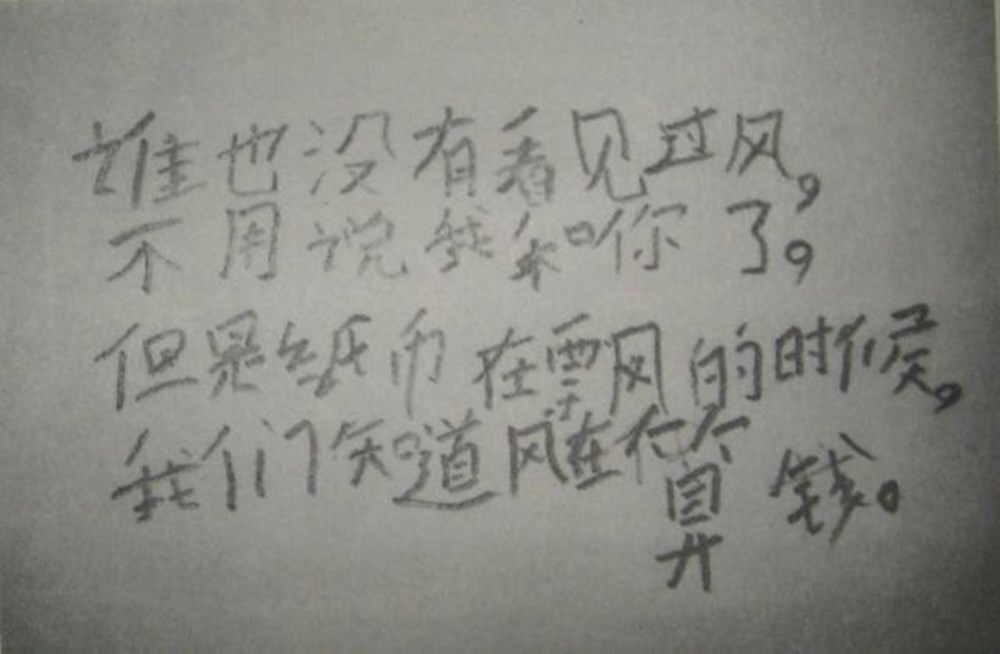 谁也没有看见过风,
不用说我和你了,
但是纸币在飘的时候,
我们知道风在算钱。